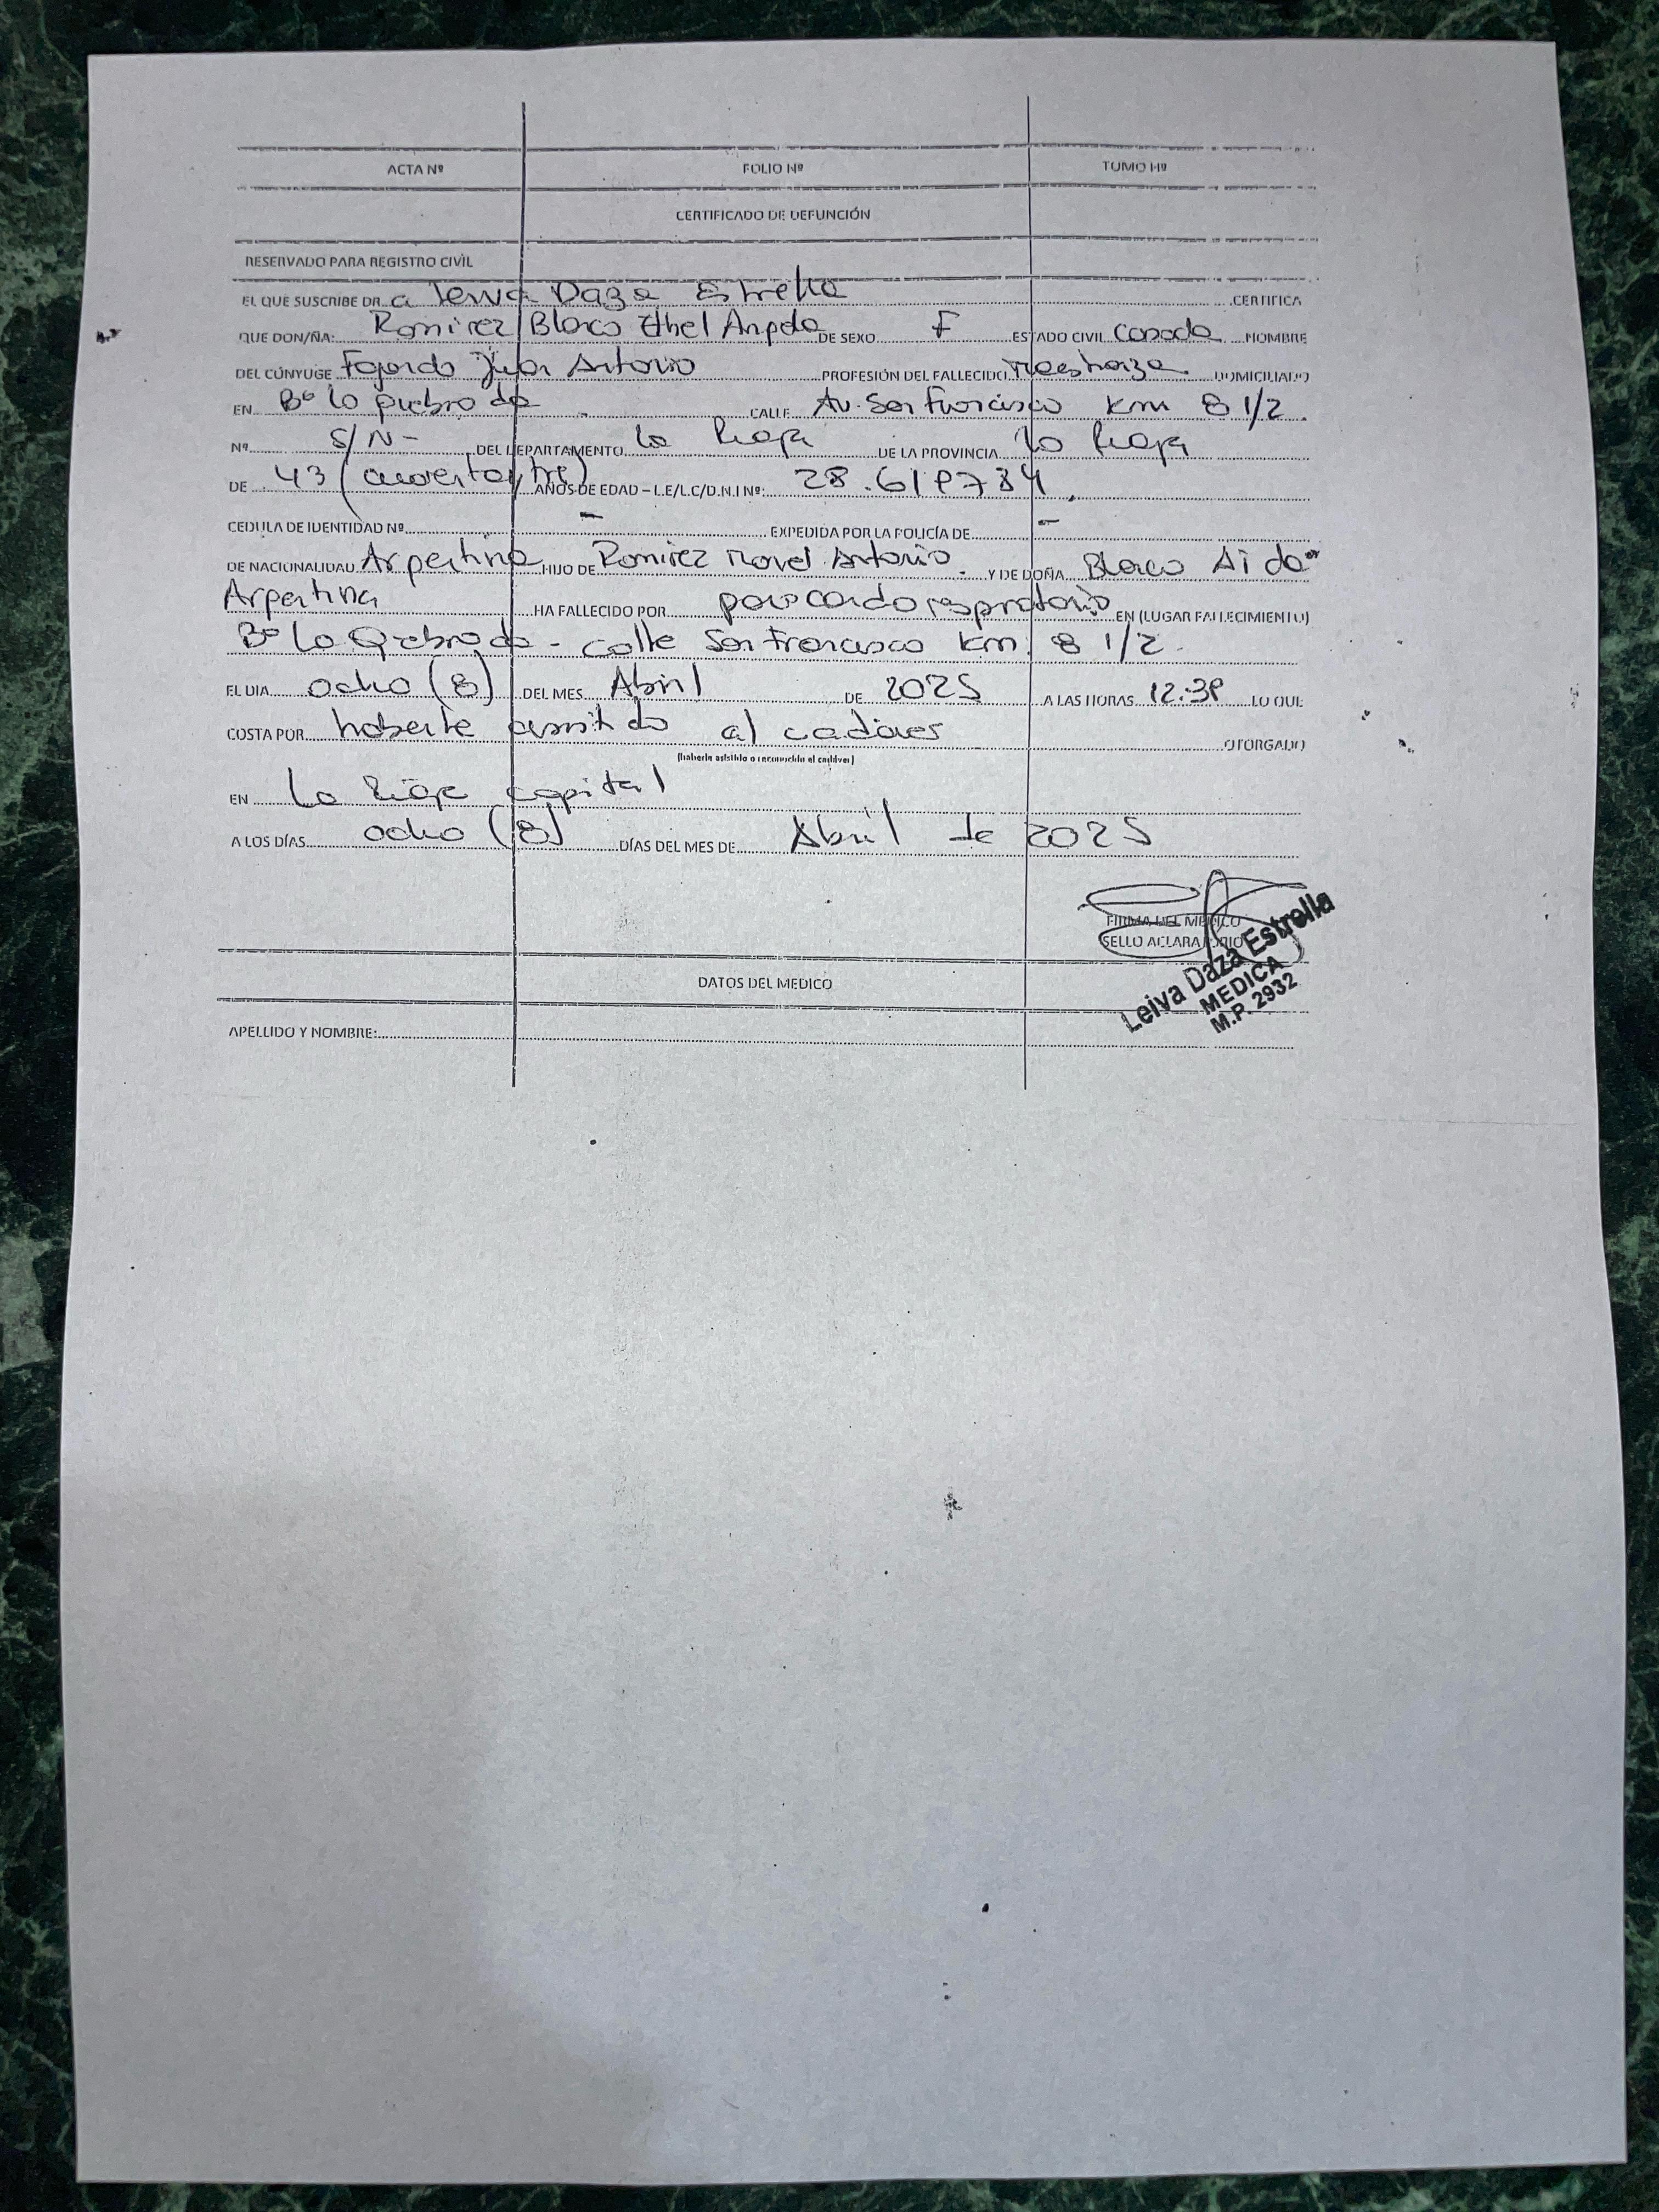 ACTA Nº FOLIO Nº TOMO Nº
CERTIFICADO DE DEFUNCIÓN
RESERVADO PARA REGISTRO CIVIL
EL QUE SUSCRIBE DR. a Leiva Daza Estrella CERTIFICA
QUE DON/ÑA: Ramirez Blanco Ethel Angela DE SEXO F ESTADO CIVIL Casada NOMBRE
DEL CÚNYUGE Fajardo Juan Antonio PROFESIÓN DEL FALLECIDO Maestranza DOMICILIADO
EN Bº La Quebrada CALLE Av. San Francisco Km 8 1/2.
Nº S/N- DEL DEPARTAMENTO La Rioja DE LA PROVINCIA La Rioja
DE 43 (cuarenta y tre) AÑOS DE EDAD – L.E/L.C/D.N.I Nº: 28.619734
CEDULA DE IDENTIDAD Nº - EXPEDIDA POR LA POLICÍA DE -
DE NACIONALIDAD Argentina HIJO DE Ramirez Manuel Antonio. Y DE DOÑA Blanco Aida
Argentina HA FALLECIDO POR paro cardorespiratorio EN (LUGAR FALLECIMIENTO)
Bº La Quebrada - calle San Francisco Km 8 1/2.
EL DIA ocho (8) DEL MES Abril DE 2025 A LAS HORAS 12:39 LO QUE
COSTA POR haberle asistido al cadáver OTORGADO
(haberle asistido o reconocido el cadáver)
EN La Rioja capital
A LOS DÍAS ocho (8) DÍAS DEL MES DE Abril de 2025
FIRMA DEL MEDICO
SELLO ACLARATORIO
Leiva Daza Estrella
MEDICA
M.P. 2932
DATOS DEL MEDICO
APELLIDO Y NOMBRE: